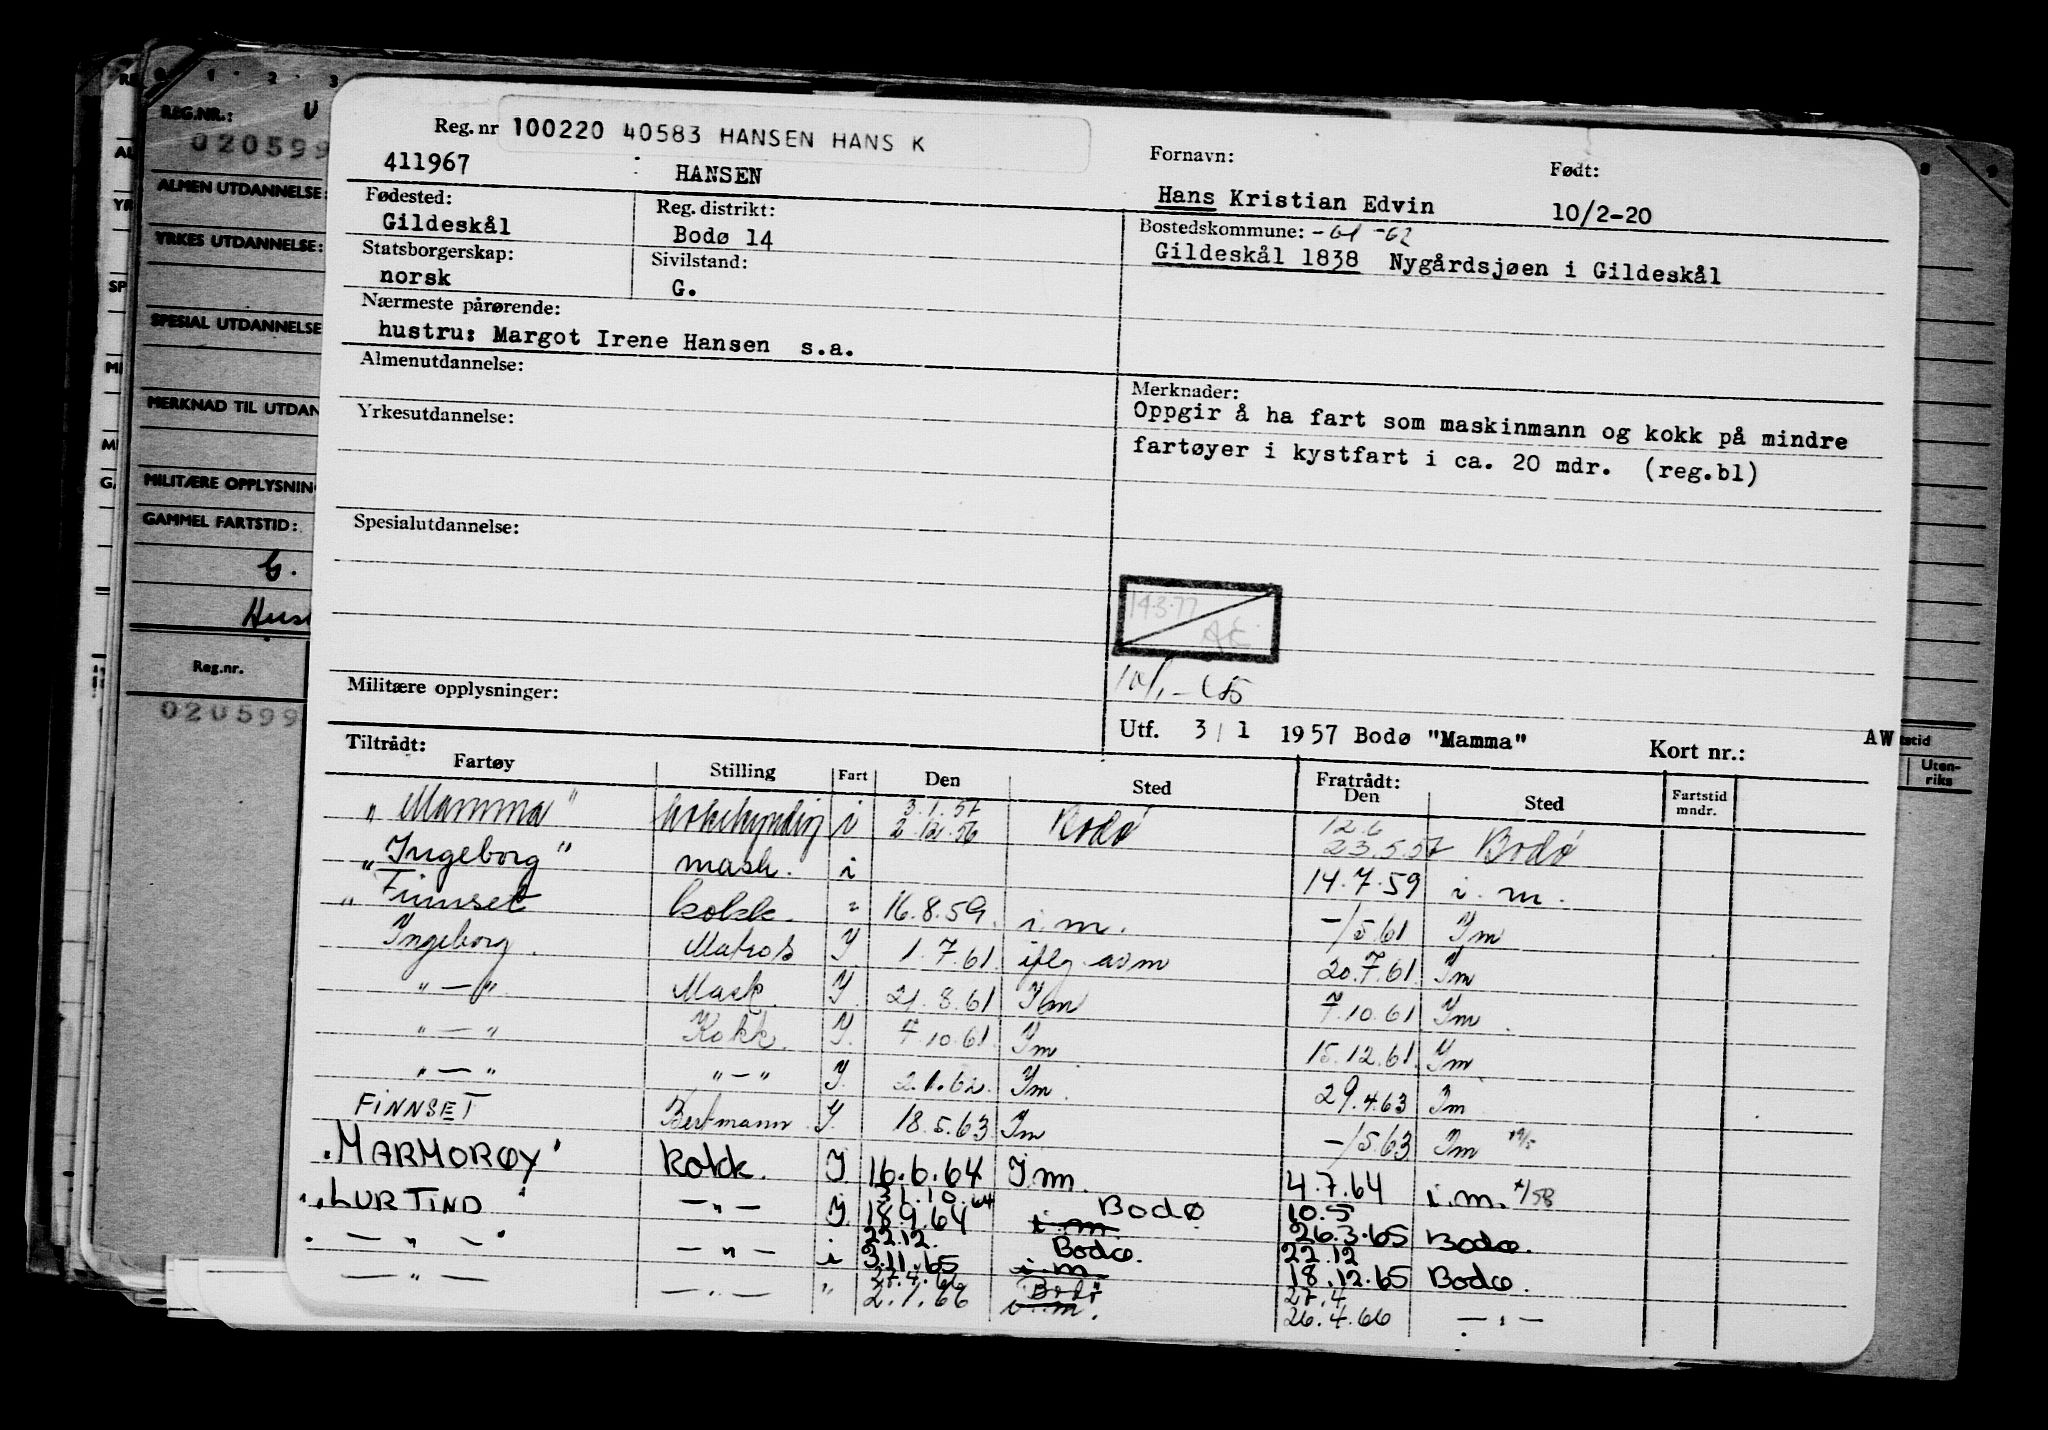 REG.NR.:
020599
ALMEN UTDANNELSE:
YRKES UTDANNELSE:
SPESIAL UTDANNELSE
MERKNAD TIL UTDAN
MILITÆRE OPPLYSNIN
GAMMEL FARTSTID:
G.
Reg.nr.
020599
Reg. nr 100220 40583 HANSEN HANS K
411967 HANSEN
Fornavn: Født:
Hans Kristian Edvin 10/2-20
Fødested: Reg. distrikt:
Gildeskål Bodø 14
Bostedskommune: -61 -62
Gildeskål 1838 Nygårdsjøen i Gildeskål
Statsborgerskap: Sivilstand:
norsk G.
Nærmeste pårørende:
hustru: Margot Irene Hansen s.a.
Almenutdannelse:
Merknader:
Oppgir å ha fart som maskinmann og kokk på mindre
fartøyer i kystfart i ca. 20 mdr. (reg.bl)
Yrkesutdannelse:
Spesialutdannelse:
14.3.77
AE
Militære opplysninger:
Utf. 3/1 1957 Bodø "Mamma" Kort nr.: AW
Tiltrådt: Fratrådt:
Fartøy Stilling Fart Den Sted Den Sted Fartstid mndr.
3.1.57 12.6
"Mamma" i 2.12.56 Bodø 23.5.57 Bodø
"Ingeborg" mask. i 14.7.59 i.m.
"Finnset kokk. " 16.8.59. i.m. -/5.61 Im
Ingeborg. Matros I. 1.7.61. iflg. avm 20.7.61. Im
"—" Mask. I. 21.8.61 Im 7.10.61 Im.
"—" Kokk. I. 7.10.61. Im 15.12.61. Im
"—" "—" I. 2.1.62. Im. 29.4.63 Im
FINNSET Bestmann I. 18.5.63 Im -/5.63 Im
"MARMORØY" kokk. I. 16.6.64 I.m. 4.7.64 i.m.
31.10.64 Bodø 10.5
"LURTIND" —"— I. 18.9.64 i.m 26.3.65 Bodø.
22.12. Bodø. 22.12
—"— —"— i 3.11.65 i.m 18.12.65 Bodø.
27.4.66 Bodø 27.4
—"— —"— " 2.1.66 i.m. 26.4.66 —"—